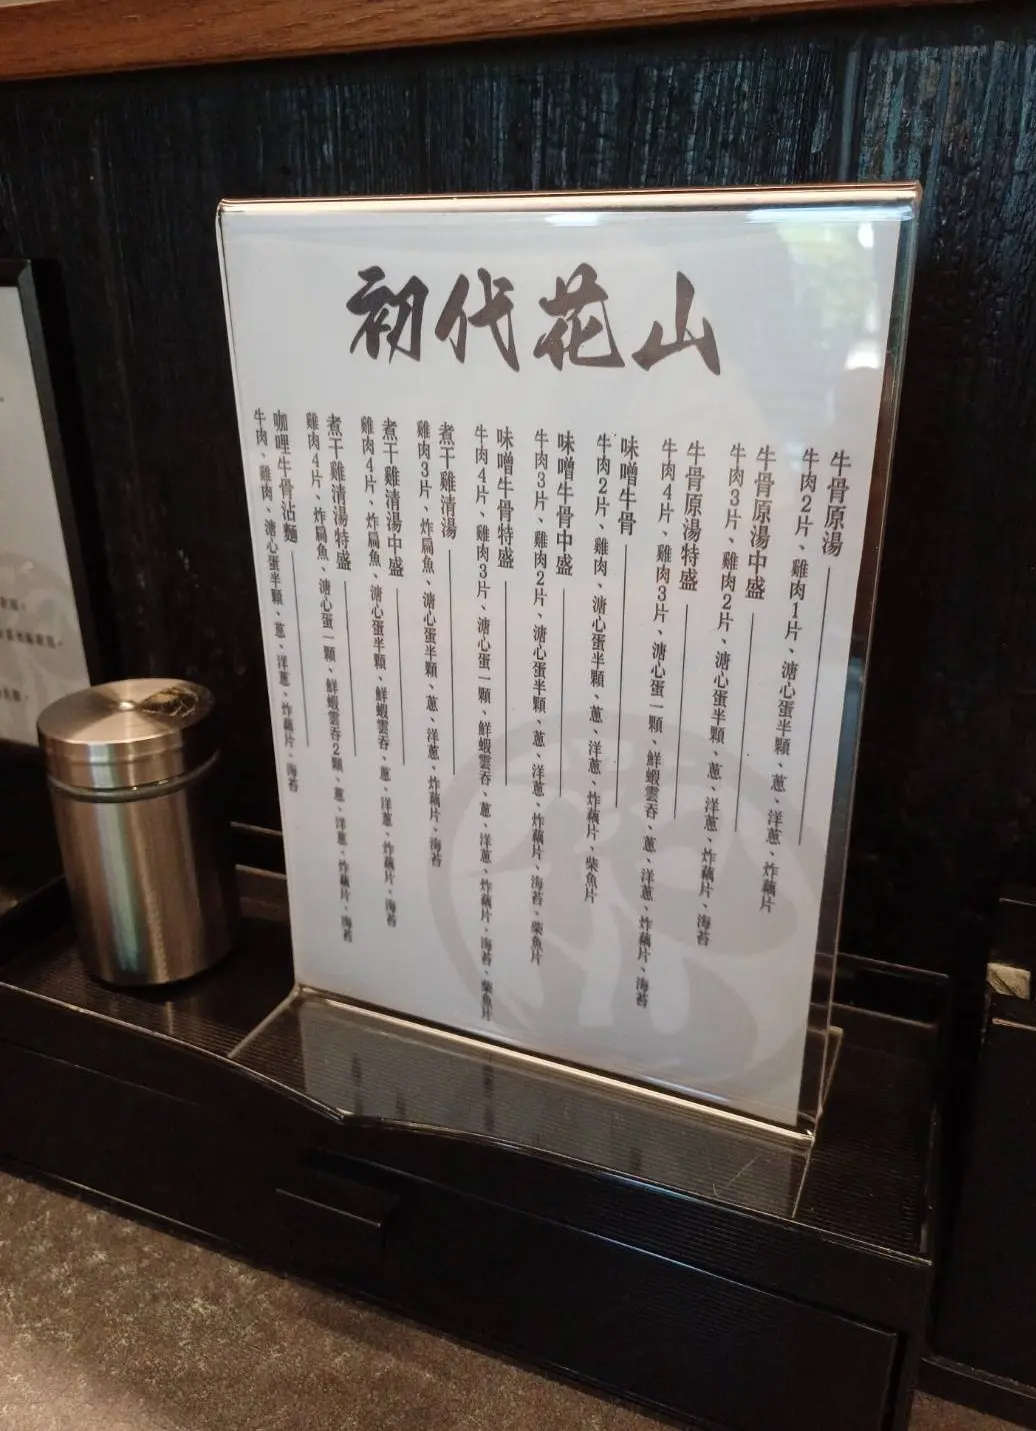 初代花山
牛骨原湯
牛肉2片、雞肉1片、溏心蛋半顆、蔥、洋蔥、炸藕片
牛骨原湯中盛
牛肉3片、雞肉2片、溏心蛋半顆、蔥、洋蔥、炸藕片、海苔
牛骨原湯特盛
牛肉4片、雞肉3片、溏心蛋一顆、鮮蝦雲吞、蔥、洋蔥、炸藕片、海苔
味噌牛骨
牛肉2片、雞肉、溏心蛋半顆、蔥、洋蔥、炸藕片、柴魚片
味噌牛骨中盛
牛肉3片、雞肉2片、溏心蛋半顆、蔥、洋蔥、炸藕片、海苔、柴魚片
味噌牛骨特盛
牛肉4片、雞肉3片、溏心蛋一顆、鮮蝦雲吞、蔥、洋蔥、炸藕片、海苔、柴魚片
煮干雞清湯
雞肉3片、炸扁魚、溏心蛋半顆、蔥、洋蔥、炸藕片、海苔
煮干雞清湯中盛
雞肉4片、炸扁魚、溏心蛋半顆、鮮蝦雲吞、蔥、洋蔥、炸藕片、海苔
煮干雞清湯特盛
雞肉4片、炸扁魚、溏心蛋一顆、鮮蝦雲吞2顆、蔥、洋蔥、炸藕片、海苔
咖哩牛骨沾麵
牛肉、雞肉、溏心蛋半顆、蔥、洋蔥、炸藕片、海苔